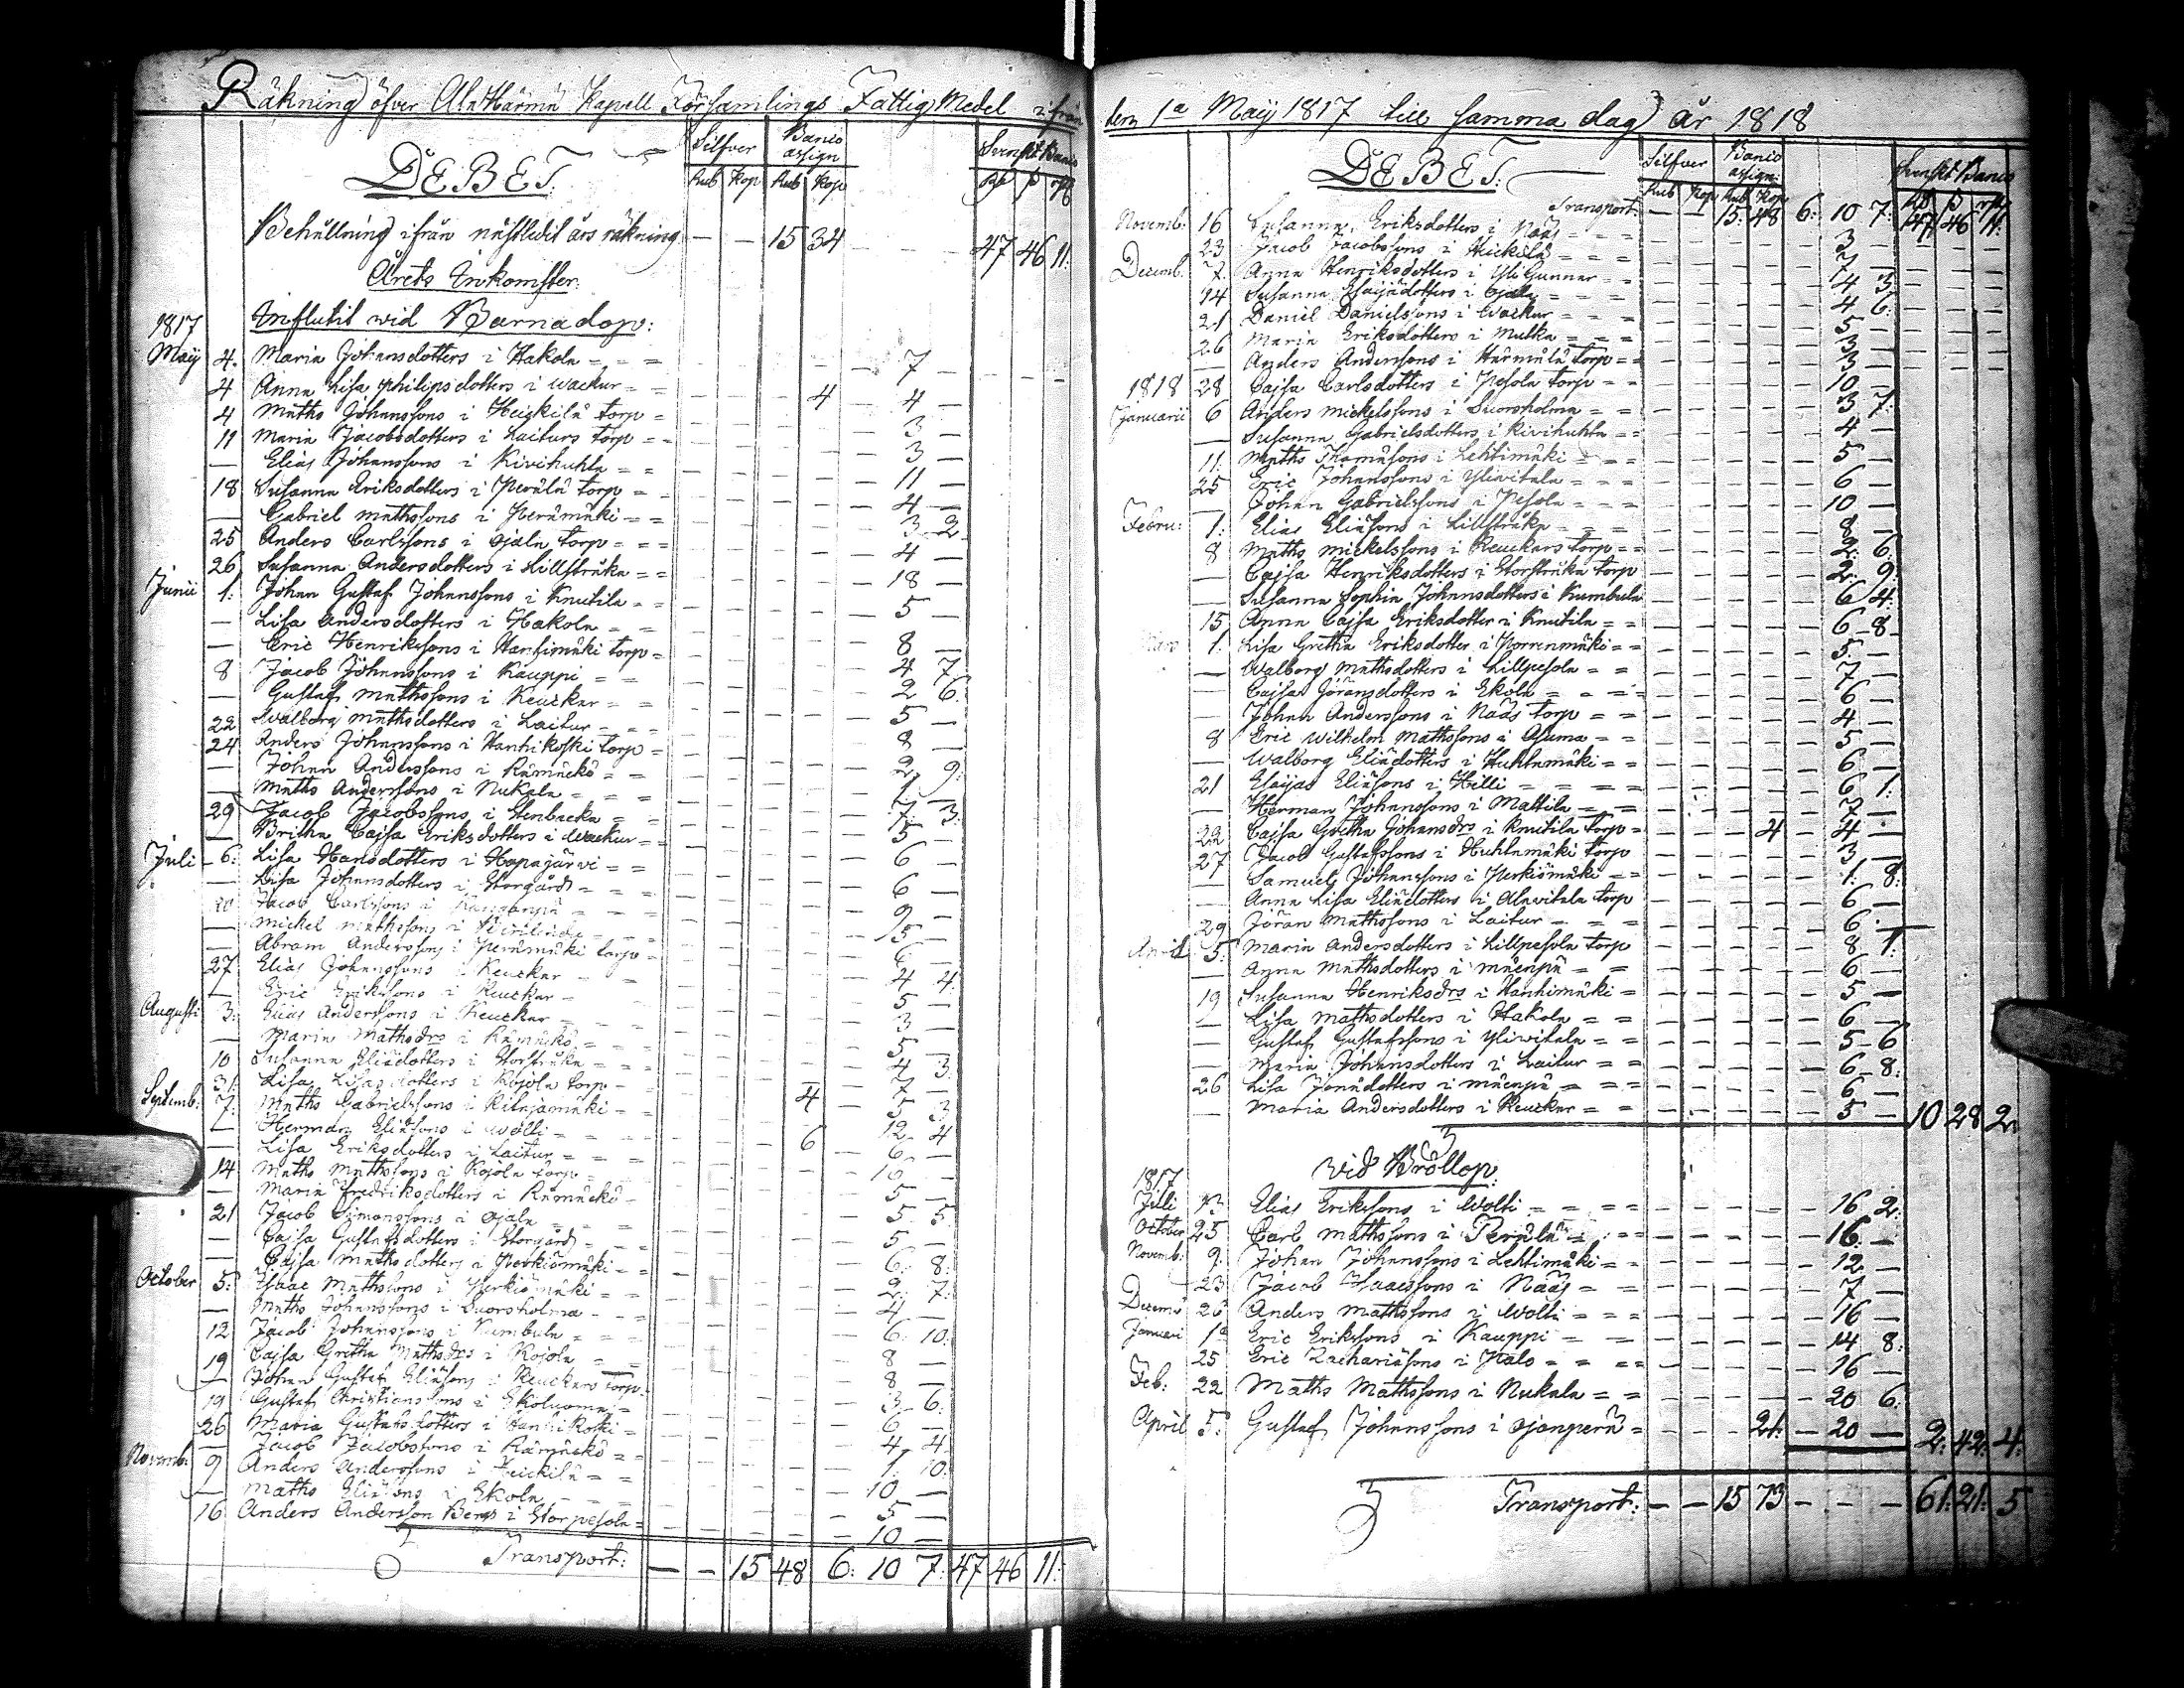 Räkning öfver Ala Härmä Kapell Församlings Fattig Medel ifrån
DEBET.
Silfver Banco assign Svenskt Banco
Rub Kop Rub Kop Rd ß rst
Behållning ifrån nästledit års räkning — — 15 34 47 46 11:
Årets Inkomster:
1817 Influtit wid Barnadop:
Maij 4. Maria Johansdotters i Hakola 7 —
4 Anna Lisa Philipsdotters i Wackur 4 4 —
4 Maths Johanssons i Heickilä torp 3 —
11 Maria Jacobsdotters i Laiturs torp 3 —
— Elias Johanssons i Kivihuhta 11 —
18 Susanna Eriksdotters i Perälä torp 4 —
— Gabriel Mathssons i Perämäki 3 2
25 Anders Carlssons i Ojala torp 4 —
26 Susanna Andersdotters i Lillstråka 18 —
Junii 1: Johan Gustaf Johanssons i Knutila 5 —
— Lisa Andersdotters i Hakola
— Eric Henrikssons i Hanhimäki torp 8 —
8 Jacob Johanssons i Kauppi 4 7
— Gustaf Mathssons i Keuckar 2 6:
22 Walborg Mathsdotters i Laitur 5 —
24 Anders Johanssons i Hanhikoski torp 8 —
— Johan Anderssons i Rämäckö 2 9:
— Maths Anderssons i Nukala
29 Jacob Jacobssons i Stenbacka 7: 3:
— Britha Cajsa Eriksdotters i Wackur 5 —
Juli 6: Lisa Hansdotters i Hapajärvi 6 —
— Lisa Johansdotters i Storgård 6 —
20 Jacob Carlssons i 9 —
— Mickel Mathssons i 15 —
— Abram Anderssons i Perämäki torp 6 —
27 Elias Johanssons i Keuckar 4 4:
— Eric Erikssons i Keuckar 5 —
Augusti 3: Elias Anderssons i Keuckar 3 —
— Maria Mathsdrs i Rämäckö 5 —
10 Susanna Eliädotters i Storstråka 4 3:
31: Lisa Lisasdotters i Kojola torp 7 —
Septemb: 7: Maths Gabrielssons i Kitajamäki 4 5 3
— Herman Eliäsons i Wolti 12 4
— Lisa Eriksdotters i Laitur 6 6 —
14 Maths Mathssons i Kojola torp 10 —
— Maria Fredriksdotters i Rämäckö 5 —
21 Jacob Simonssons i Ojala 5 5
— Cajsa Gustafsdotters i Storgård 5 —
— Cajsa Mathsdotters i Perkiömäki 6 8:
October 5: Isaac Mathssons i Perkiömäki 2: 7:
— Maths Johanssons i Suorsholma 4 —
12 Jacob Johanssons i Kumbula 6: 10:
19 Cajsa Gretha Mathsdrs i Kojola 8 —
— Johan Gustaf Eliäsons i Keuckars torp 8 —
19 Gustaf Christianssons i Ekoluoma 3 6:
26 Maria Gustafsdotters i Hanhikoski 6 —
— Jacob Jacobssons i Rämäckö 4 4:
Novemb: 9 Anders Anderssons i Heickilä 1: 10:
— Maths Eliäsons i Ekola 10 —
16 Anders Andersson Bergs i Storpesola 5 —
10 —
Transport: — — 15 48 6: 10 7: 47 46 11:
dem 1a Maij 1817 till samma dag år 1818
DEBET:
Silfver Banco assign: Svenskt Banco
Rub Kop Rub Kop Rd ß rst
Transport: — — 15: 48 6: 10 7: 47 46 11:
Novemb: 16 Susanna Eriksdotters i Nääs 3 —
23 Jacob Jacobssons i Heickilä 7 —
Decemb: 7. Anna Henriksdotters i Yli Gunnar 4 3:
14 Susanna Esaijädotters i Ojala 4 6:
21 Daniel Danielssons i Wackur 5 —
26 Maria Eriksdotters i Multka 3 —
— Anders Anderssons i Härmälä torp 3 —
1818 28 Cajsa Carlsdotters i Pesola torp 10 —
Januarii 6 Anders Mickelssons i Suorsholma 3 7:
— Susanna Gabrielsdotters i Kivihuhta 4 —
11: Maths Thomäsons i Lehtimäki 5 —
25 Eric Johanssons i Yliwitala 6 —
— Johan Gabrielssons i Pesola 10 —
Febru: 1: Elias Eliäsons i Lillstråka 8 —
8 Maths Mickelssons i Keuckars torp 2: 6:
— Cajsa Henriksdotters i Storstråka torp 2: 9:
— Susanna Sophia Johansdotters i Kumbula 6 4:
15 Anna Cajsa Eriksdotter i Knutila 6 8
Mars 1: Lisa Gretha Eriksdotter i Porrenmäki 5 —
— Walborg Mathsdotters i Lillpesola 7 —
— Cajsa Göransdotters i Ekola 6 —
— Johan Anderssons i Nääs torp 4 —
8 Eric Wilhelm Mathssons i Asuma 5 —
— Walborg Eliädotters i Huhtamäki 6 —
21 Esaijas Eliäsons i Hilli 6 1:
— Herman Johanssons i Mattila 7 —
22 Cajsa Gretha Johansdrs i Knutila torp 4 4 —
27 Jacob Gustafssons i Huhtamäki torp 3 —
— Samuel Johanssons i Perkiömäki 1: 8:
— Anna Lisa Eliädotters i Alawitala torp 6 —
29 Jöran Mathssons i Laitur 6 —
April 5: Maria Andersdotters i Lillpesola torp 8 1:
— Anna Mathsdotters i Mäenpä 6 —
19 Susanna Henriksdrs i Hanhimäki 5 —
— Lisa Mathsdotters i Hakola 6 —
— Gustaf Gustafssons i Yliwitala 5 6
— Maria Johansdotters i Laitur 6 8:
26 Lisa Jonädotters i Mäenpä 6 —
— Maria Andersdotters i Keuckar 5 — 10 28 2:
Wid Bröllop:
1817
Julii 13 Elias Erikssons i Wolti 16 2:
October 25 Carl Mathssons i Perälä 16: —
Novemb: 9: Johan Johanssons i Lehtimäki 12 —
23 Jacob Isaacssons i Nääs 7 —
Decemb 26 Anders Mathssons i Wolti 16 —
Januari 1a Eric Erikssons i Kauppi 14 8:
25 Eric Zachariäsons i Palo 16 —
Feb: 22 Maths Mathssons i Nukala 20 6:
April 5: Gustaf Johanssons i Ojanperä 21: 20 — 2: 42: 4:
Transport: — — 15 73 — — — 61: 21: 5